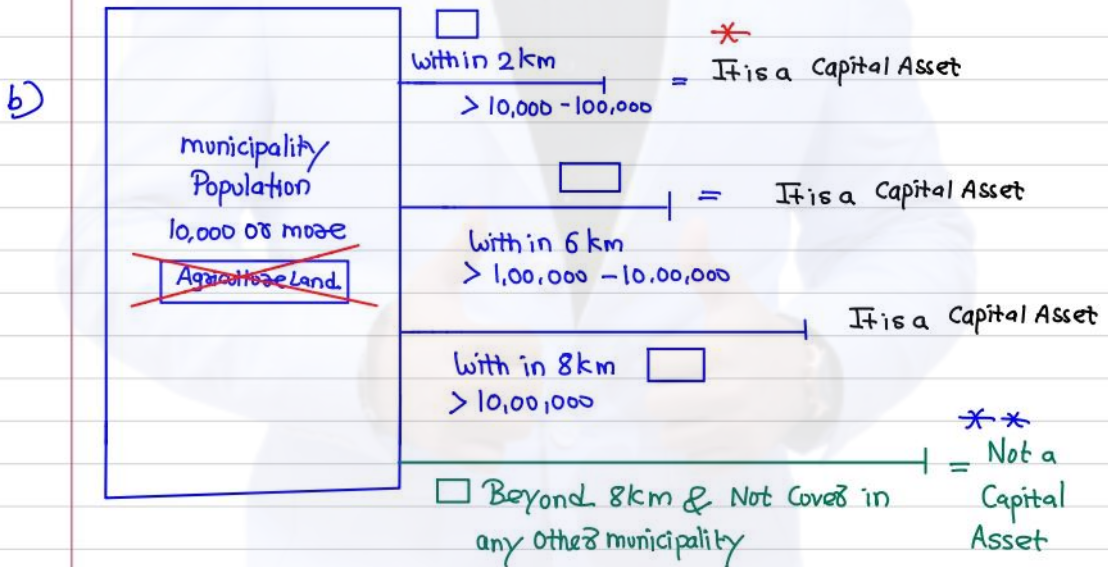 b)
municipality
Population
10,000 or more
Agriculture Land
within 2 km
> 10,000 - 100,000
= It is a Capital Asset
= It is a Capital Asset
Within 6 km
> 1,00,000 - 10,00,000
It is a Capital Asset
With in 8km
> 10,00,000
= Not a
Capital
Asset
Beyond 8km & Not Cover in
any other municipality